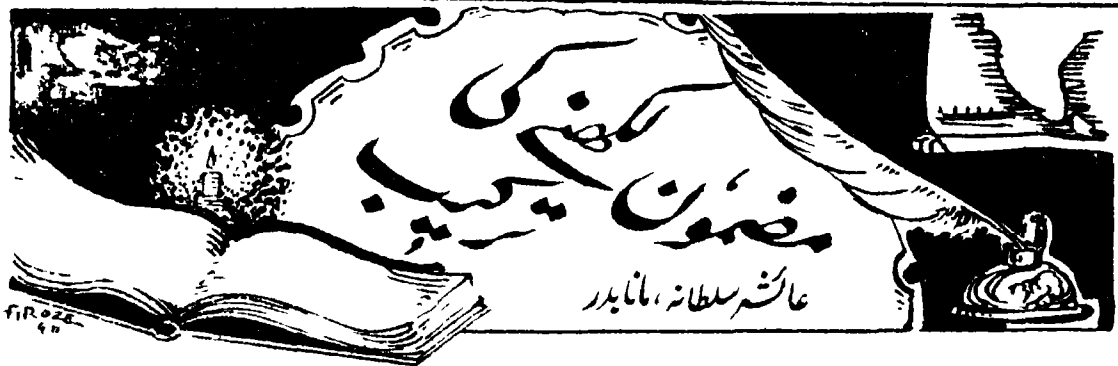 مضمون لکھنے کی ترکیب
عائشہ سلطانہ، مانابدر
FIROZE